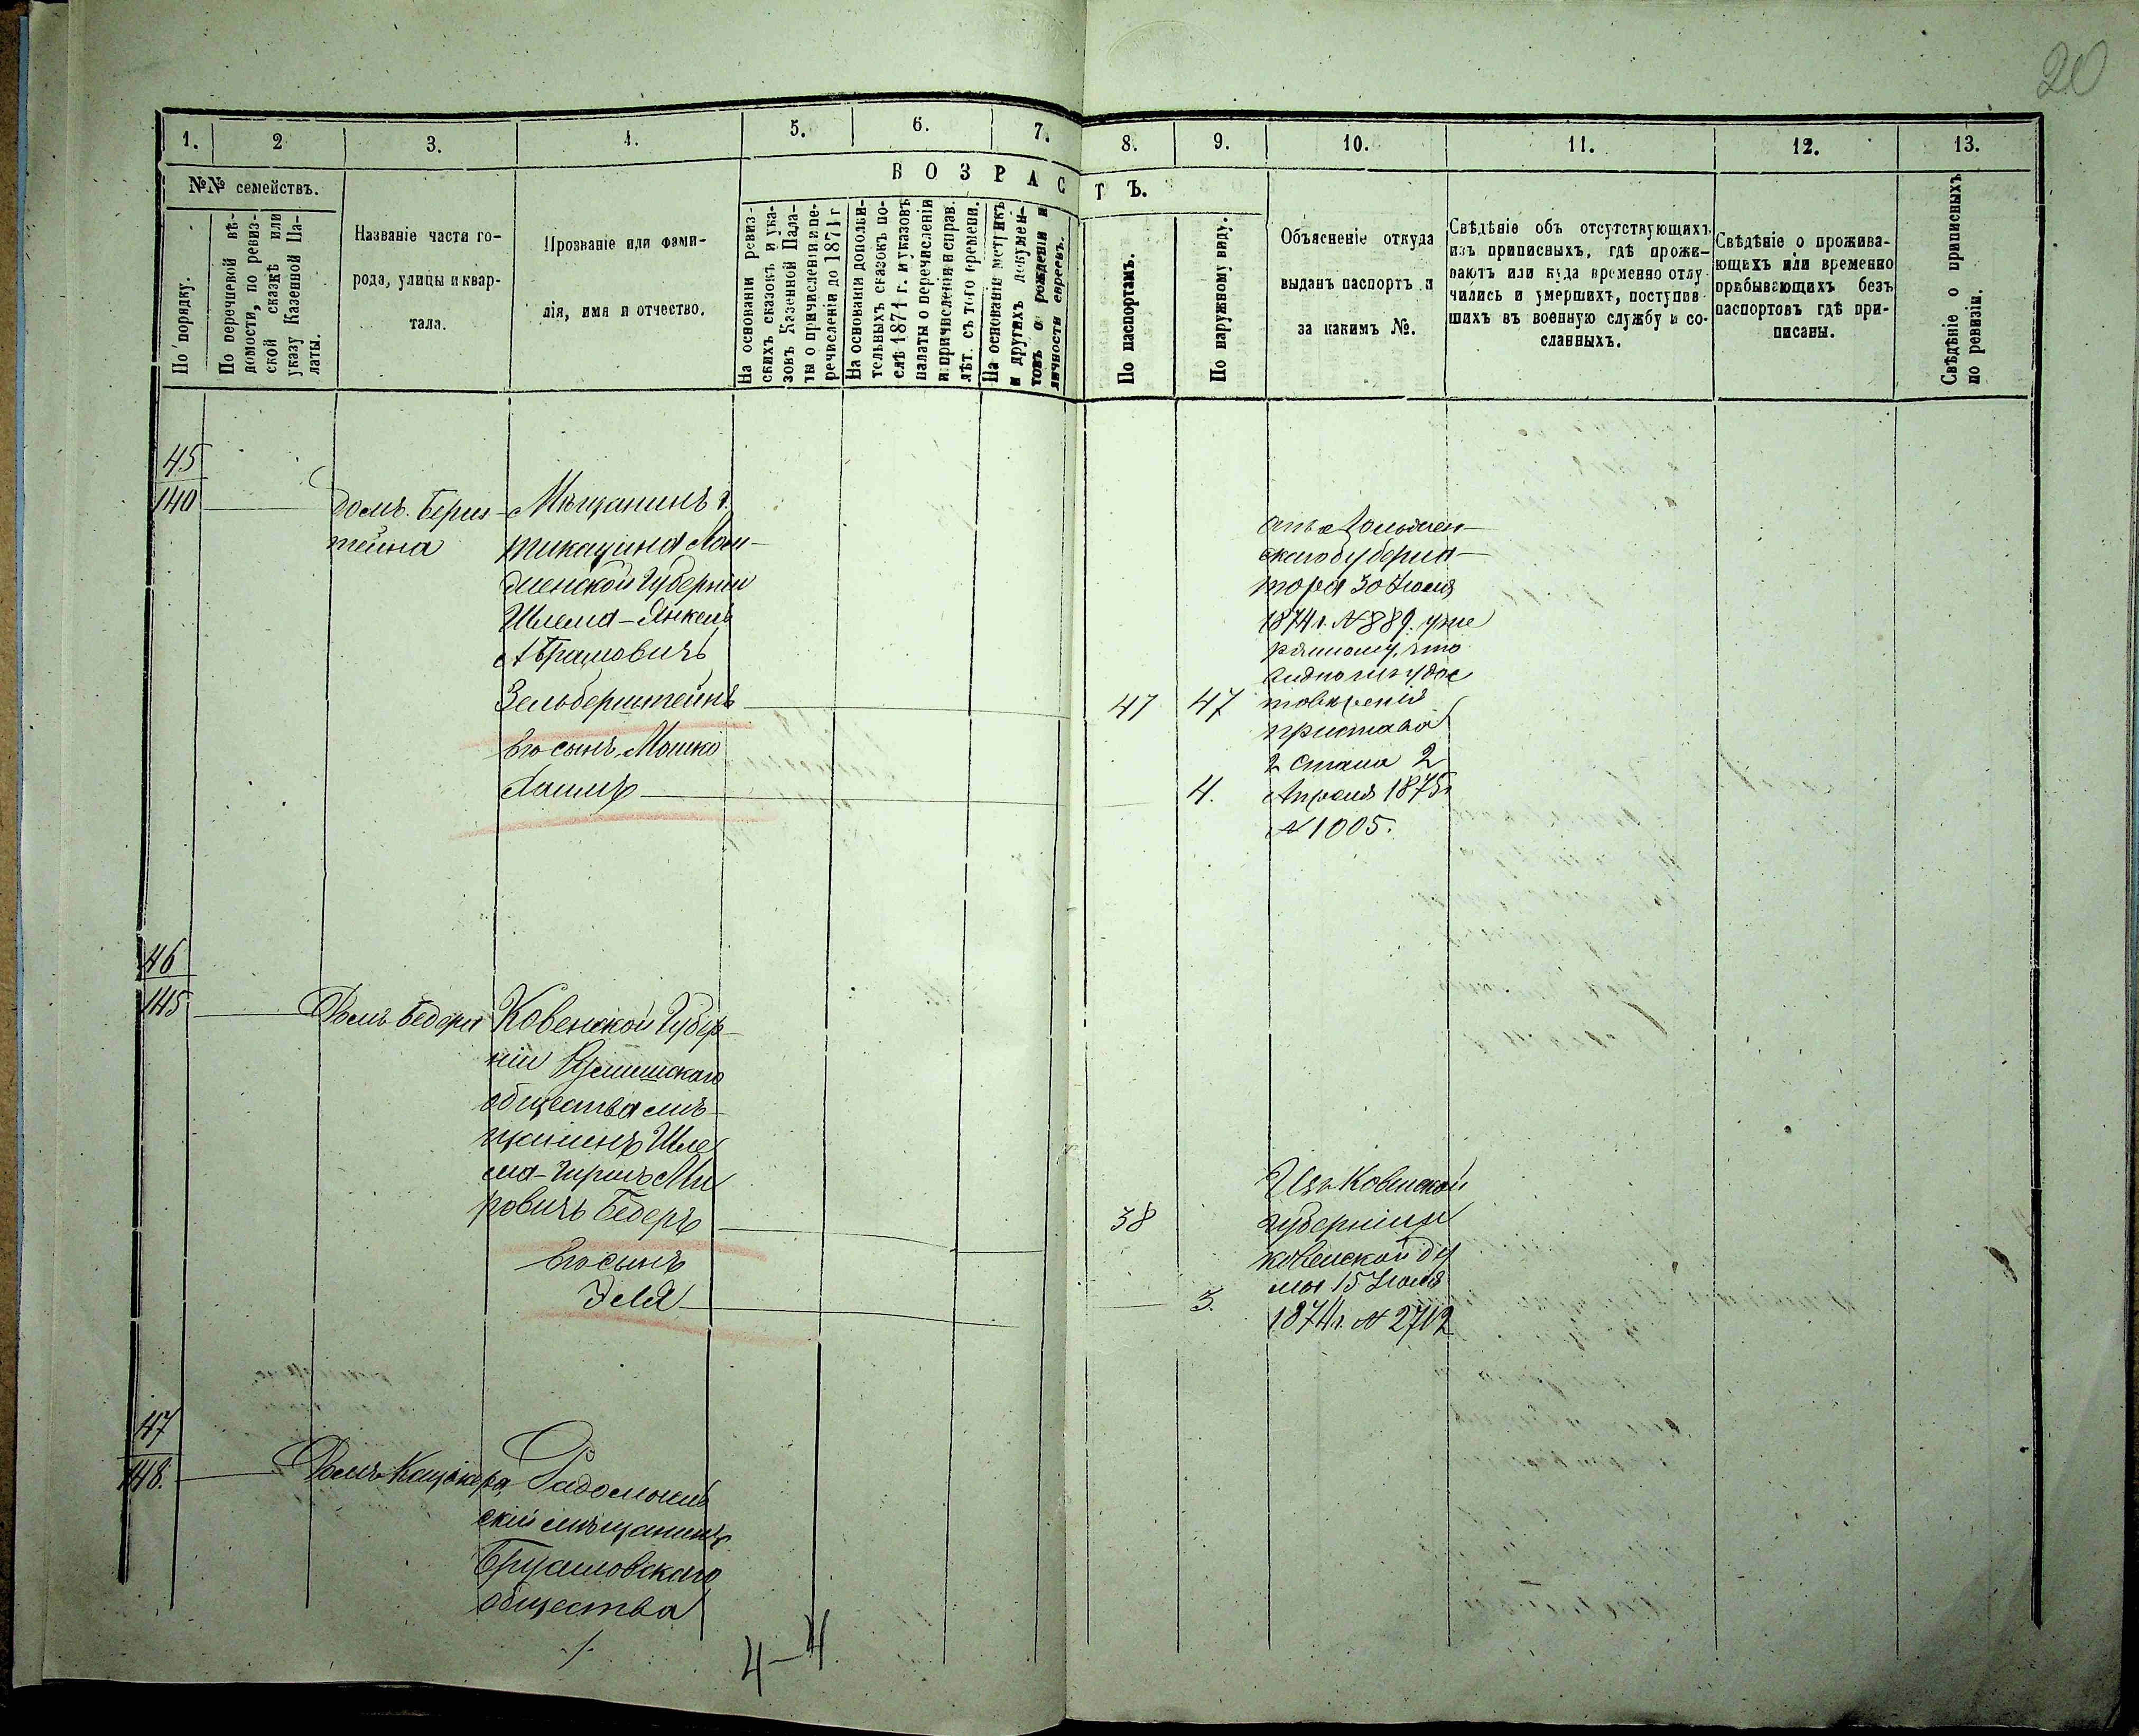 20
1. 2 3. 4. 5. 6. 7. 8. 9. 10. 11. 12. 13.
№№ семействъ.
В О З Р А С Т Ъ.
По порядку.
По перечневой вѣ-
домости, по ревиз-
ской сказкѣ или
указу Казенной Па-
латы.
Названіе части го-
рода, улицы и квар-
тала.
Прозваніе или фами-
лія, имя и отчество.
На основаніи ревиз-
скихъ сказокъ и ука-
зовъ Казенной Пала-
ты о причисленіи и пе-
речисленіи до 1871 г
На основаніи дополни-
тельныхъ сказокъ по-
слѣ 1871 г. и указовъ
палаты о перечисленіи
и причисленіи и справ.
лѣт. съ того времени.
На основаніи метрикъ
и другихъ докумен-
товъ о рожденіи и
личности евреевъ.
По паспортамъ.
По наружному виду.
Объясненіе откуда
выданъ паспортъ и
за какимъ №.
Свѣдѣніе объ отсутствующихъ
изъ приписныхъ, гдѣ прожи-
ваютъ или куда временно отлу-
чились и умершихъ, поступив-
шихъ въ военную службу и со-
сланныхъ.
Свѣдѣніе о прожива-
ющихъ или временно
прибывающихъ безъ
паспортовъ гдѣ при-
писаны.
Свѣдѣніе о приписныхъ
по ревизіи.
45
140
Домъ. Берш-
тейна
Мѣщанинъ г.
Тикацина Лом-
жинской Губерніи
Шлема-Янкель
Абрамовичъ
Зельберштейнъ
Его сынъ Мошко
Хаимъ
47 47
4.
отъ Ломжин-
скаго Губерна-
тора 30 Іюля
1874 г. № 889.
что
видно изъ удос
товѣренія
пристава
2 Стана 2
Апрѣля 1875 г.
№ 1005.
46
145
Домъ Бедера
Ковенской Губер-
ніи
общества мѣ-
щанинъ Шле
ма-Гиршъ
ровичъ Бедеръ
Его сынъ
Эля
38
3.
Изъ Ковенской
Губерніи
Ковенской Ду
мы 15 Іюля
1874 г. № 2712
47
148.
Домъ
Радомысль
скій мѣщанинъ
Брусиловскаго
общества
4-4